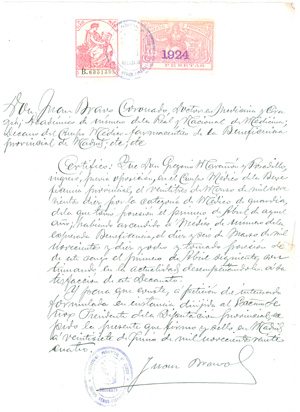 1924
PESETAS
Don Juan Bravo Coronado, Doctor en Medicina y Ciru-
jía, Académico de número de la Real y Nacional de Medicina,
Decano del Cuerpo Médico-farmacéutico de la Beneficencia
provincial de Madrid, etc, etc
Certifico: Que Don Gregorio Marañón y Posadillo,
ingresó, previa oposición, en el Cuerpo Médico de la Bene-
ficencia provincial, el veintitres de Marzo de mil nove-
cientos diez por la categoría de Médico de guardia,
de la que tomó posesión el primero de Abril de aquel
año; habiendo ascendido a Médico de número de la
expresada Beneficencia el diez y seis de Marzo de mil
novecientos diez y ocho y tomado posesión de
de este cargo el primero de Abril siguiente, con-
tinuando en la actualidad desempeñándolo a sa-
tisfacción de este Decanato.
Y para que conste, a petición del interesado
formulada en instancia dirigida al Excmo.
Señor Presidente de la Diputación provincial, ex-
pido la presente que firmo y sello en Madrid
a veintisiete de Junio de mil novecientos veinti-
cuatro.
Juan Bravo